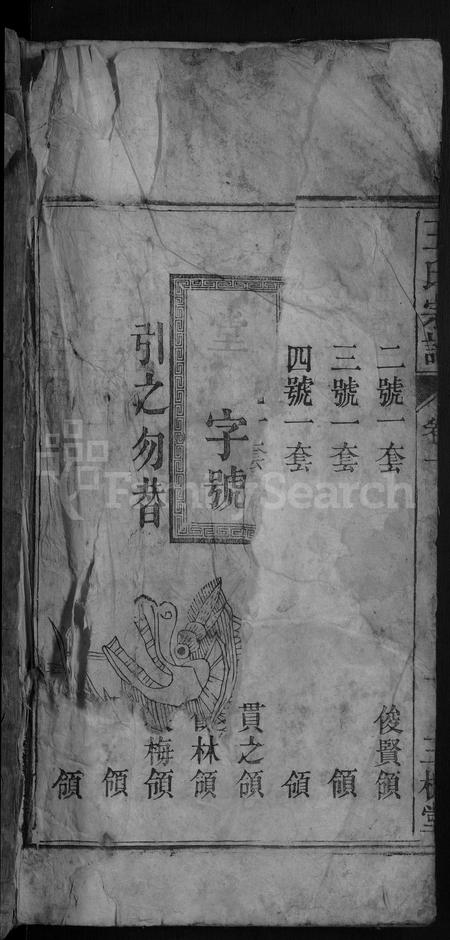 王氏宗譜
卷一
三槐堂
二號一套
俊賢領
三號一套
領
四號一套
領
一套
貫之領
堂
字號
林領
引之勿替
梅領
領
領
FamilySearch